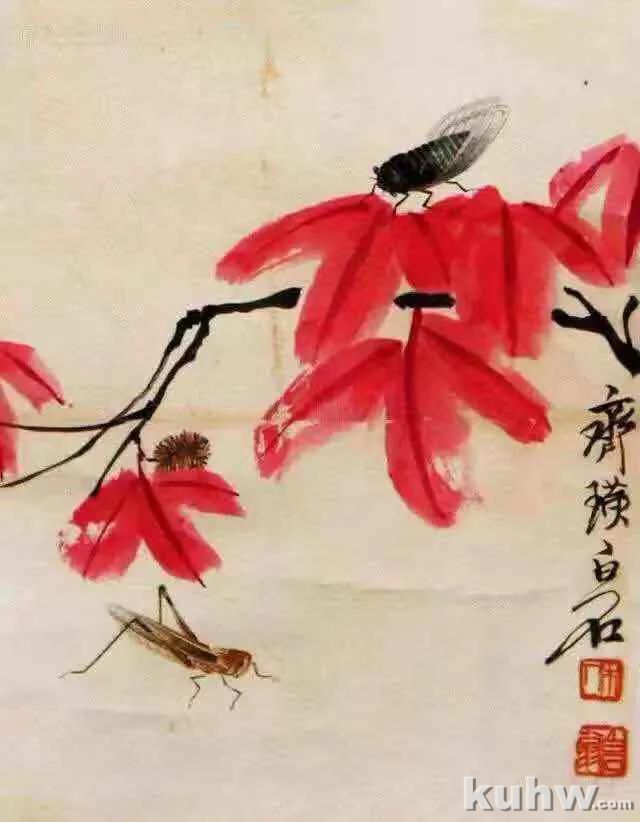 齊璜白石
木人
kuhw.com